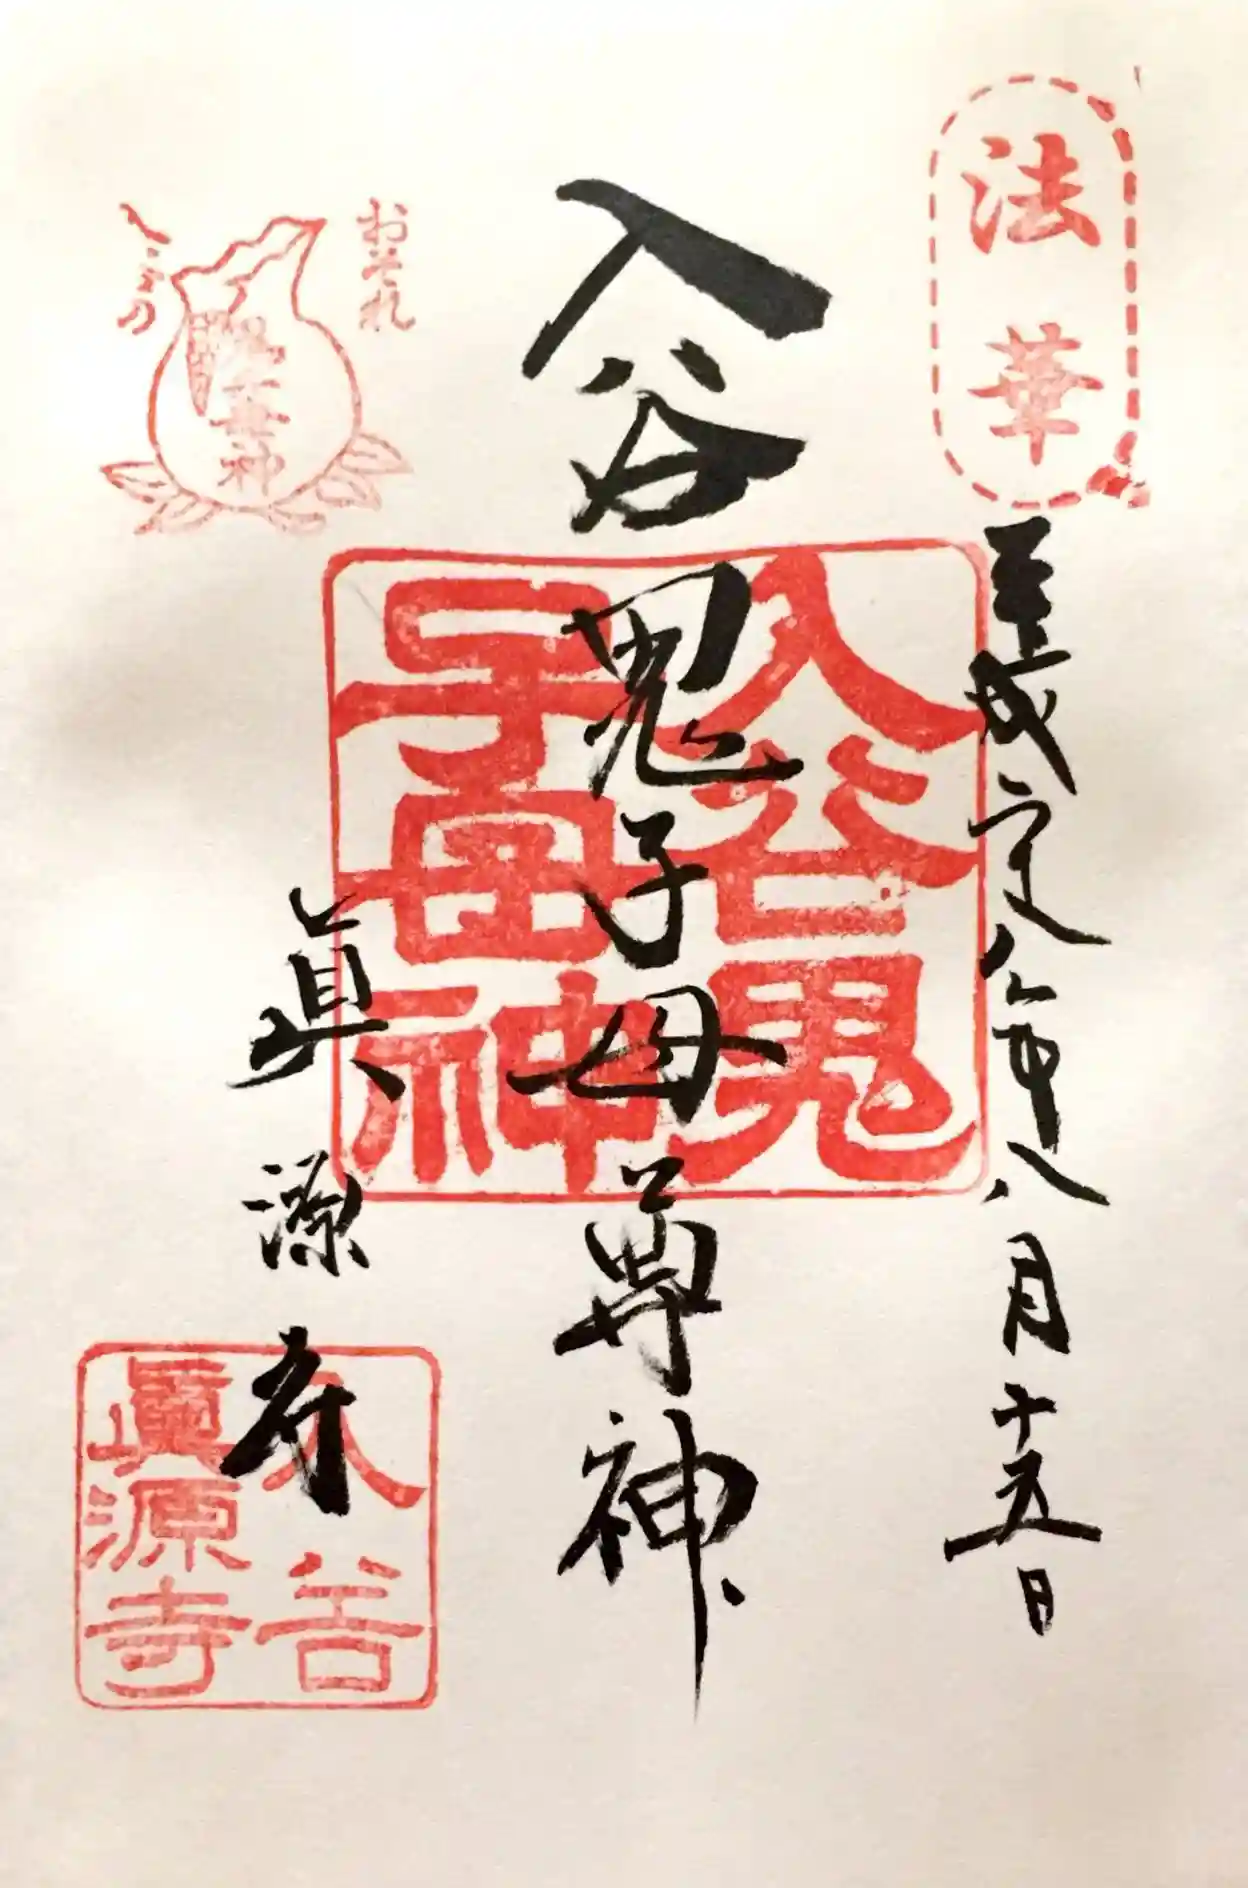 法華
平成 八年八月十五日
入谷鬼子母尊神
入谷鬼
子母神
眞源寺
おそれ
鬼子母神
入谷
眞源寺